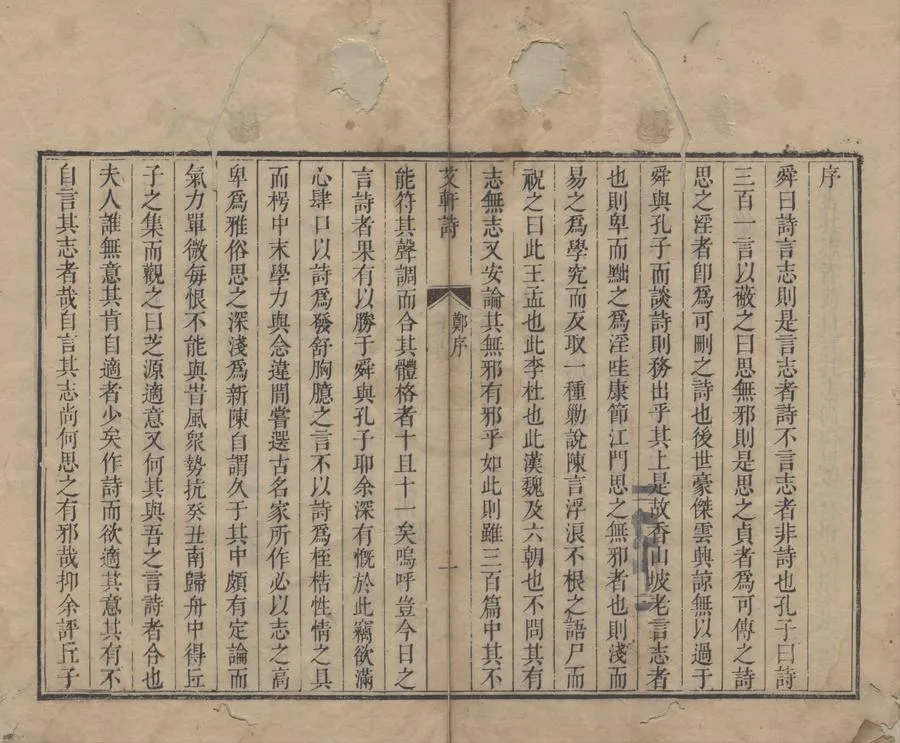 序
舜曰詩言志則是言志者詩不言志者非詩也孔子曰詩
三百一言以蔽之曰思無邪則是思之貞者爲可傳之詩
思之淫者卽爲可刪之詩也後世豪傑雲興諒無以過于
舜與孔子而談詩則務出乎其上是故香山坡老言志者
也則卑而黜之爲淫哇康節江門思之無邪者也則淺而
易之爲學究而反取一種勦說陳言浮浪不根之語尸而
祝之曰此王孟也此李杜也此漢魏及六朝也不問其有
志無志又安論其無邪有邪乎如此則雖三百篇中其不
艾軒詩
鄭序
一
能符其聲調而合其體格者十且十一矣嗚呼豈今日之
言詩者果有以勝于舜與孔子耶余深有慨於此竊欲滿
心肆口以詩爲發舒胸臆之言不以詩爲桎梏性情之具
而楞中末學力與念違間嘗選古名家所作必以志之高
卑爲雅俗思之深淺爲新陳自謂久于其中頗有定論而
氣力單微每恨不能與昔風衆勢抗癸丑南歸舟中得丘
子之集而觀之曰芝源適意又何其與吾之言詩者合也
夫人誰無意其肯自適者少矣作詩而欲適其意其有不
自言其志者哉自言其志尚何思之有邪哉抑余評丘子